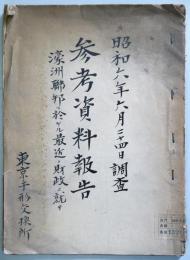 昭和六年六月二十四日調査
参考資料報告
濠洲聯邦ニ於ケル最近ノ財政ニ就テ
東京手形交換所